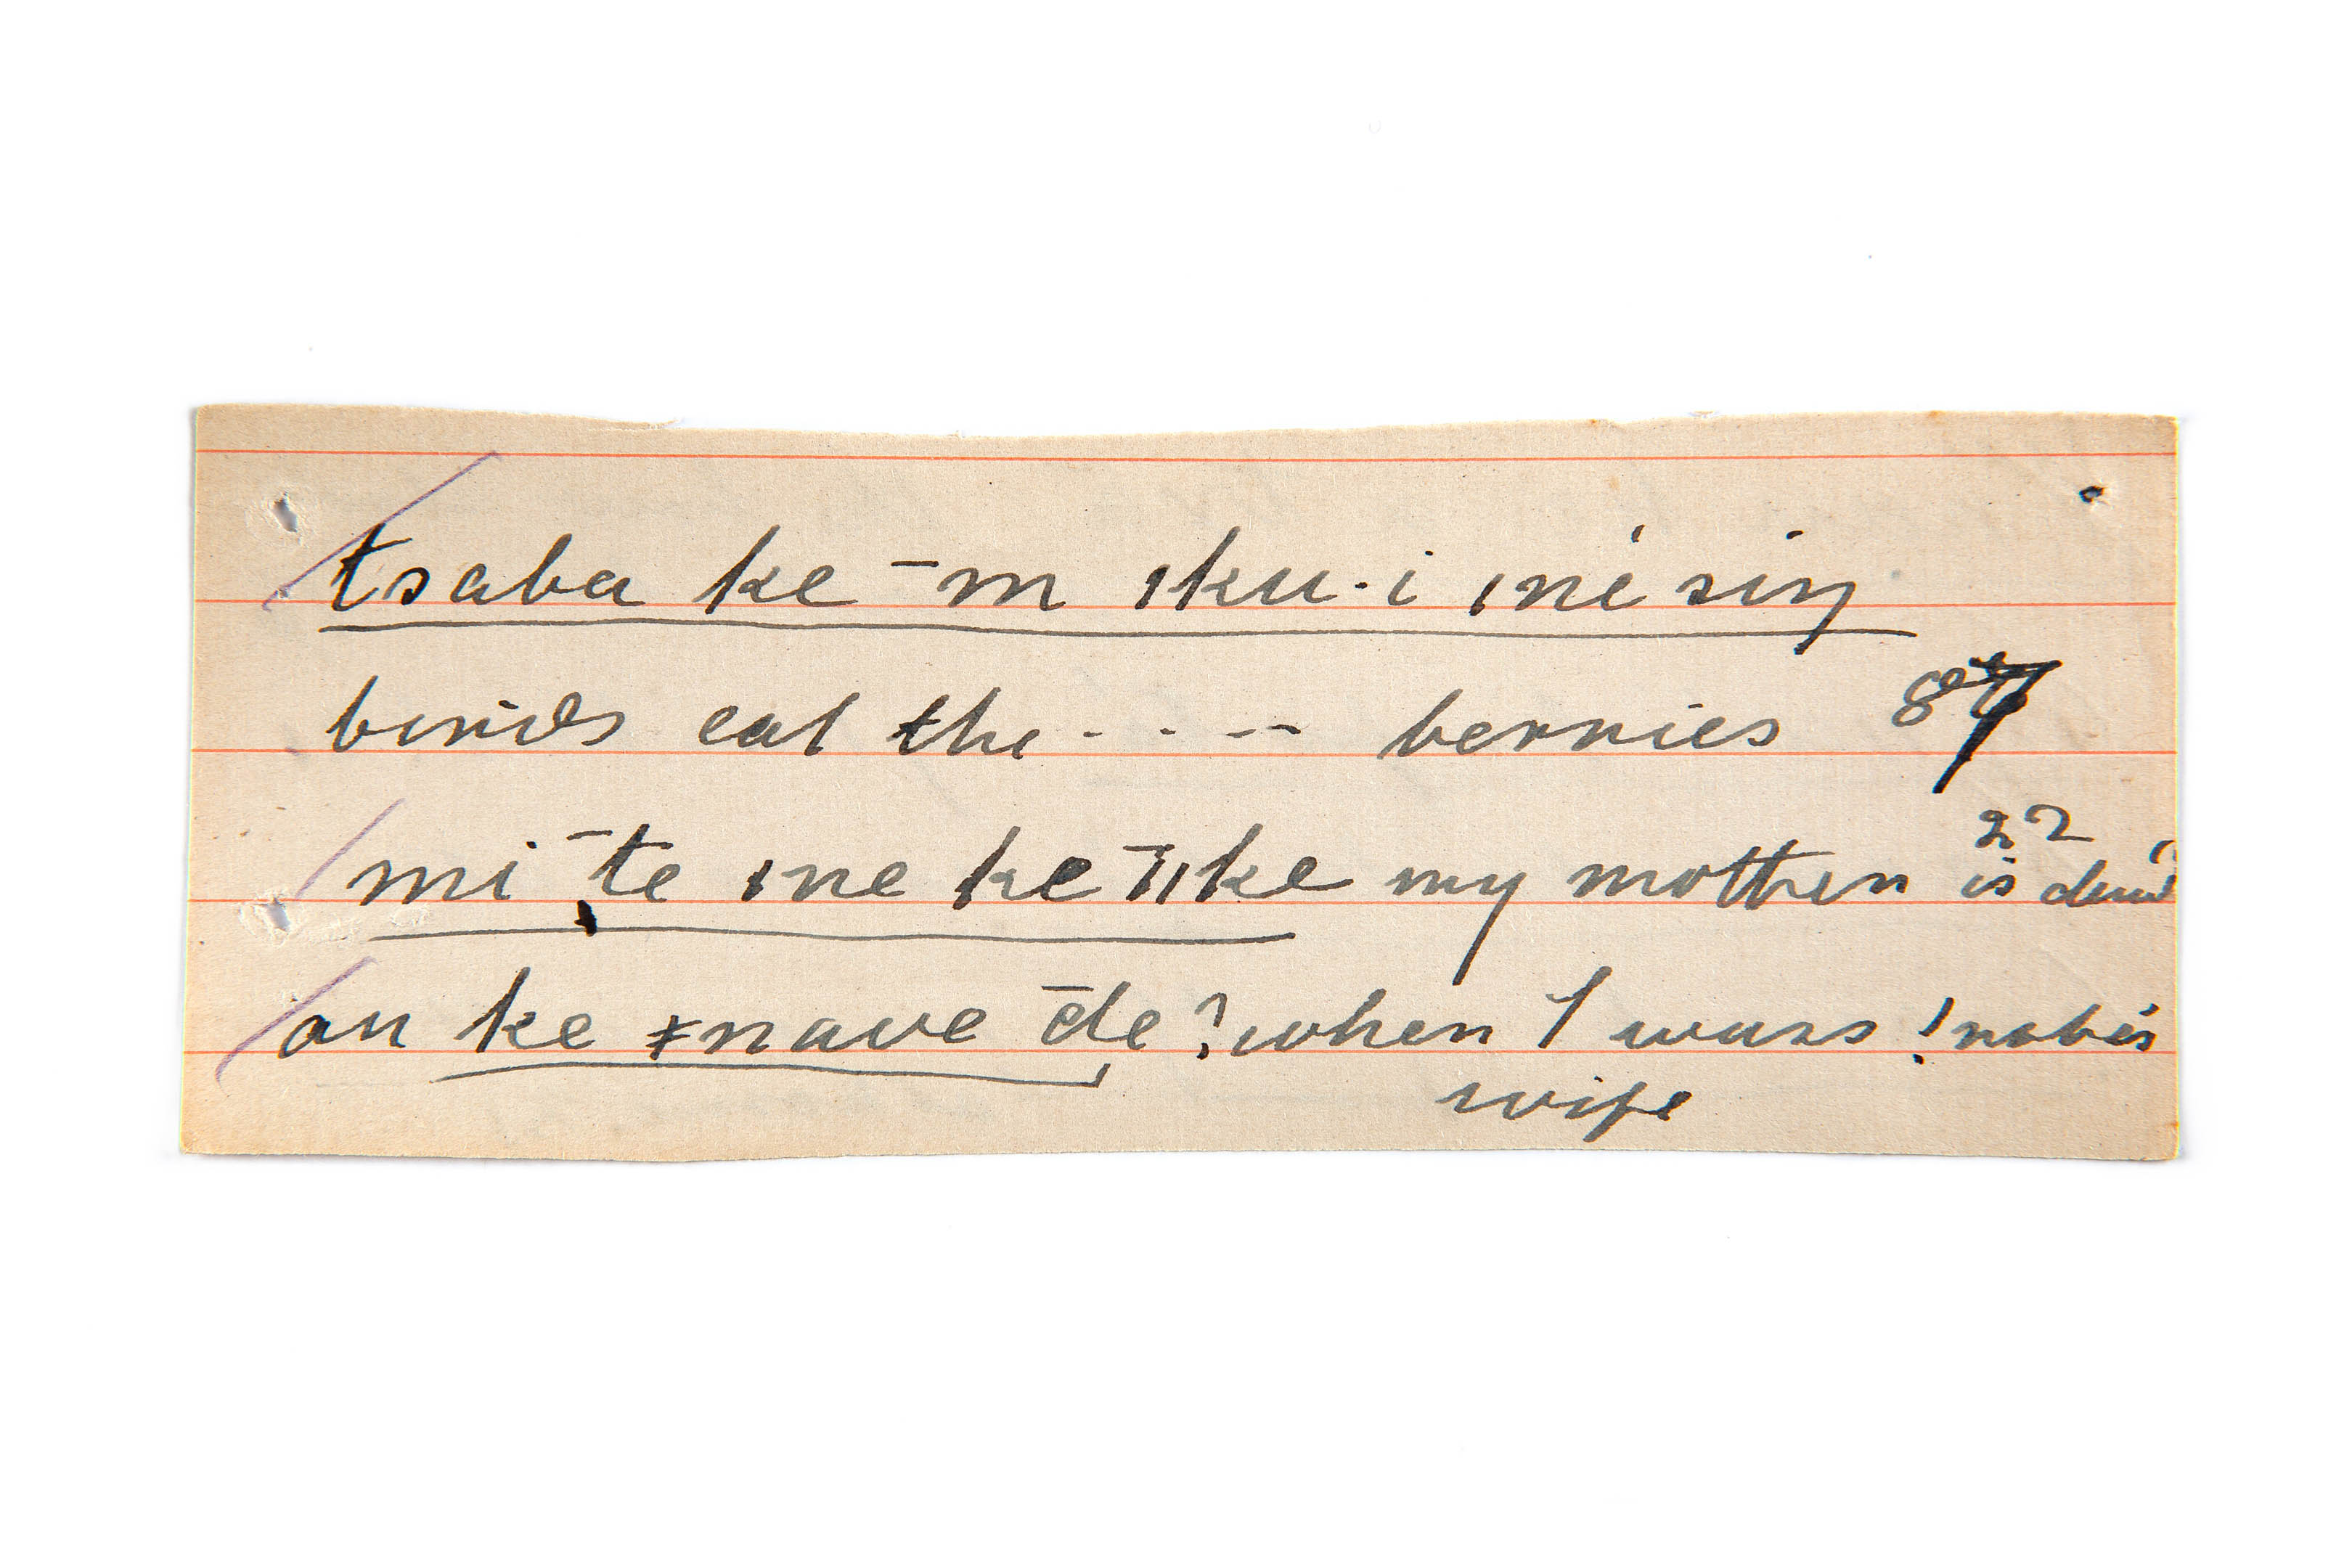 tsaba ke -m ıku·i ıné siŋ
birds eat the - - - - berries 87
22
mi te ıne ke ııke my mother is dead
an ke ǂnave de? when I was !nabe's
wife